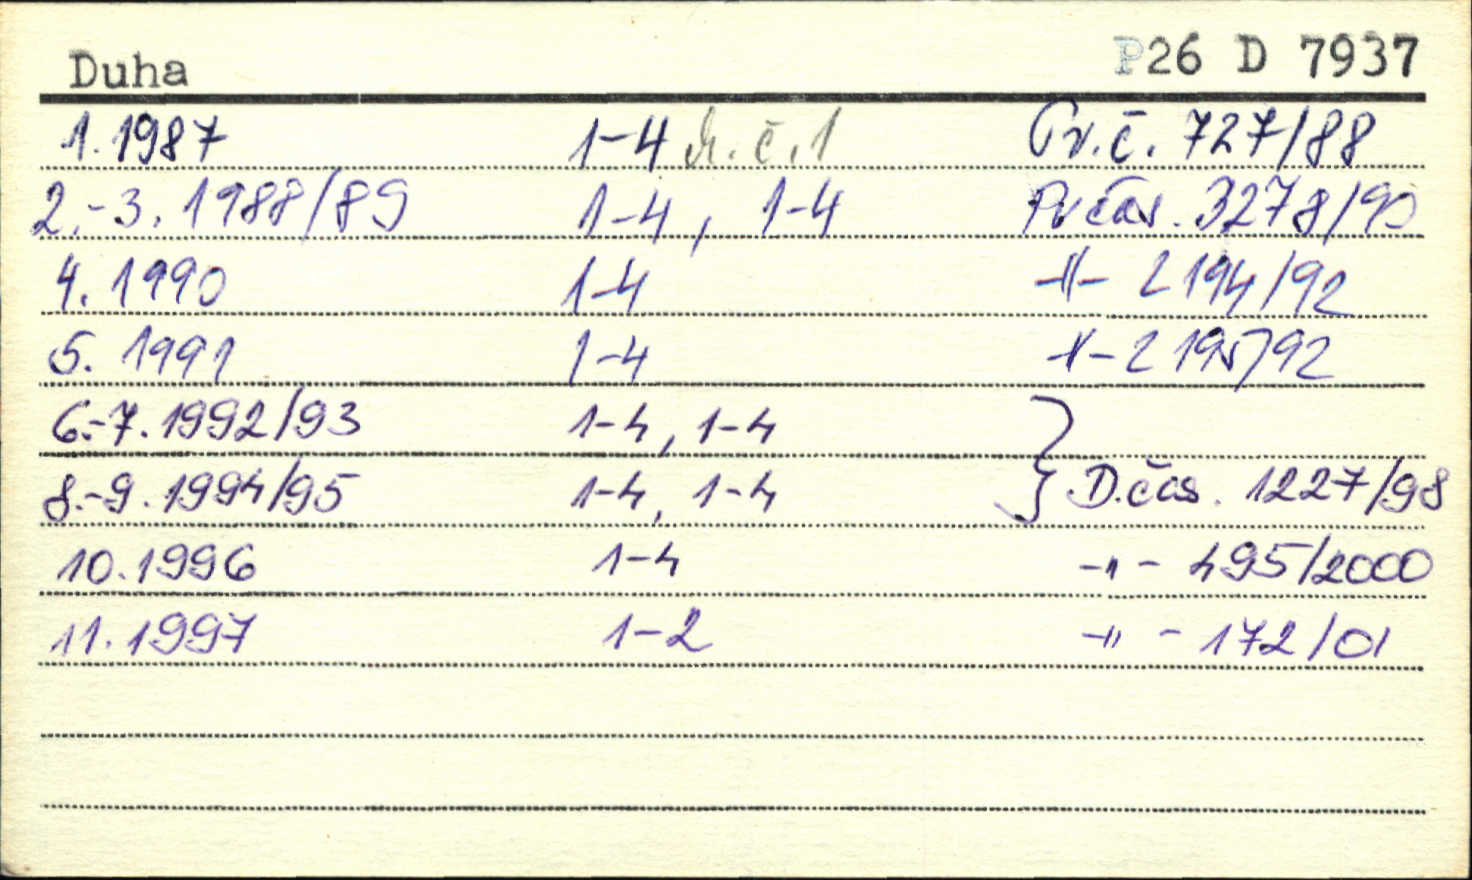 Duha P26 D 7937
1. 1987 1-4 č. 1 Pr. č. 727/88
2.-3. 1988/89 1-4, 1-4 Pr čas. 3278/90
4. 1990 1-4 -"- 2194/92
5. 1991 1-4 -"- 2195/92
6.-7. 1992/93 1-4, 1-4 }
8.-9. 1994/95 1-4, 1-4 } D. čas. 1227/98
10. 1996 1-4 -"- 495/2000
11. 1997 1-2 -"- 172/01